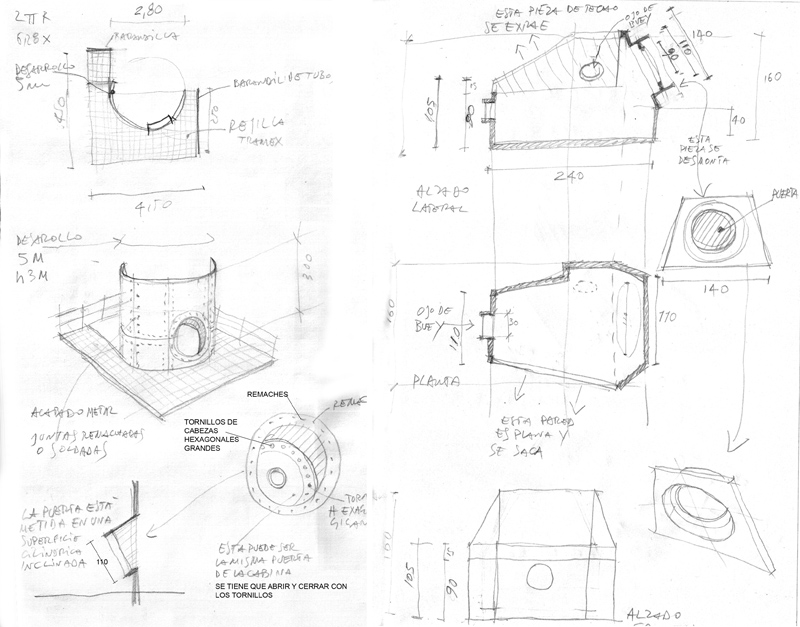 2 π R
6,28 x
2,80
BARANDILLA
DESAROLLO
5 M
BARANDIL DE TUBO
REJILLA
TRAMEX
4,50
DESAROLLO
5 M
h 3 M
300
ACABADO METAL
JUNTAS REMACHADAS
O SOLDADAS
REMACHES
TORNILLOS DE
CABEZAS
HEXAGONALES
GRANDES
LA PUERTA ESTA
METIDA EN UNA
SUPERFICIE
CILINDRICA
INCLINADA
110
ESTA PUEDE SER
LA MISMA PUERTA
DE LA CABINA
SE TIENE QUE ABRIR Y CERRAR CON
LOS TORNILLOS
ESTA PIEZA DE TECHO
SE EXTRAE
OJO DE
BUEY
140
110
90
160
105
40
240
ESTA
PIEZA SE
DESMONTA
ALZADO
LATERAL
PUERTA
140
OJO DE
BUEY
110
30
110
PLANTA
ESTA PARED
ES PLANA Y
SE SACA
160
105
90
15
ALZADO